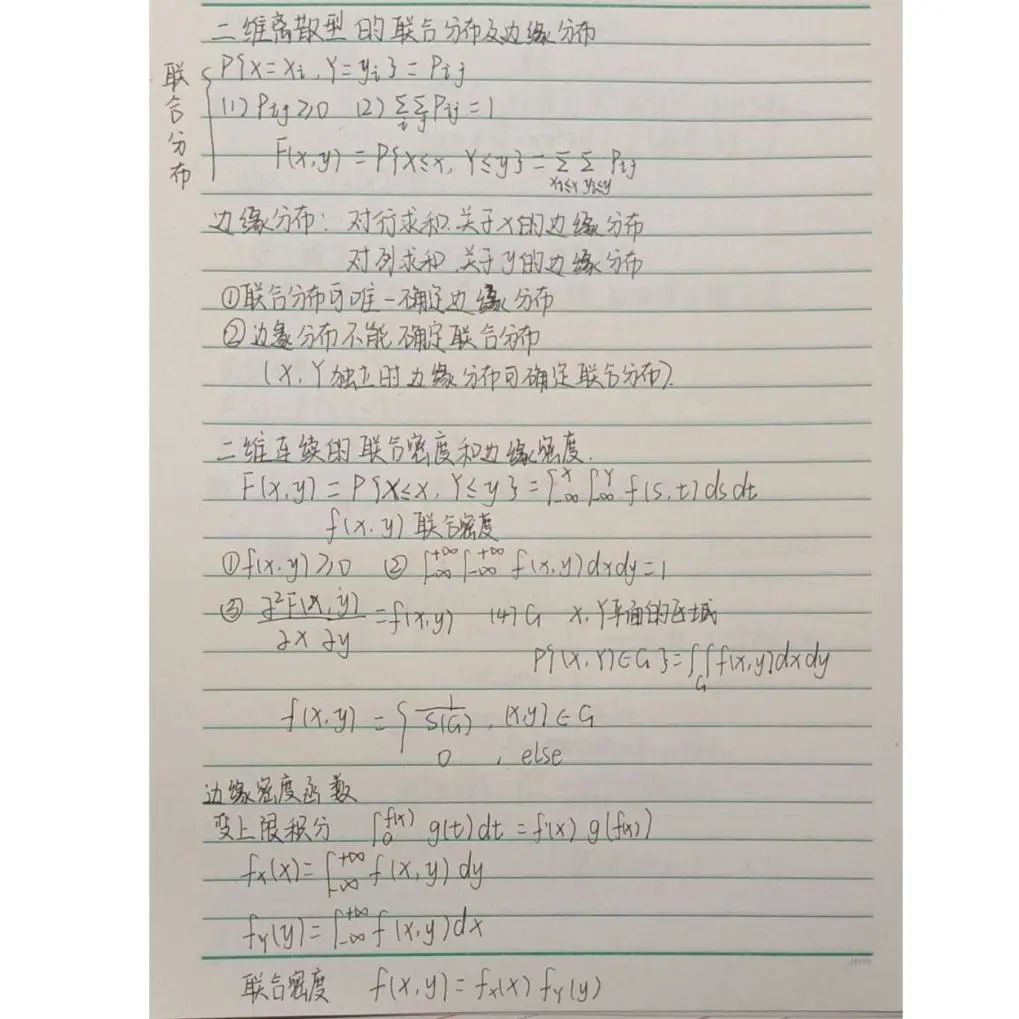 二维离散型的联合分布及边缘分布
联合分布
P{X=xi,Y=yi}=Pij
(1)Pij≥0 (2)∑i∑jPij=1
F(x,y)=P{X≤x,Y≤y}=∑xi≤x∑yi≤yPij
边缘分布: 对行求和.关于x的边缘分布
对列求和.关于y的边缘分布
①联合分布可唯一确定边缘分布
②边缘分布不能确定联合分布
(X,Y独立时边缘分布可确定联合分布).
二维连续的联合密度和边缘密度.
F(x,y)=P{X≤x,Y≤y}=∫-∞^x∫-∞^Yf(s,t)dsdt
f(x.y)联合密度
①f(x,y)≥0 ②∫-∞^+∞∫-∞^+∞f(x,y)dxdy=1
③∂²F(x,y)/∂x∂y=f(x,y) (4)G X,Y平面的区域
P{(X,Y)∈G}=∫∫Gf(x,y)dxdy
f(x,y)={1/S(G),(x,y)∈G
0,else
边缘密度函数
变上限积分 ∫0^f(x)g(t)dt=f'(x)g(f(x))
fX(x)=∫-∞^+∞f(x,y)dy
fY(y)=∫-∞^+∞f(x,y)dx
联合密度 f(x,y)=fX(x)fY(y)